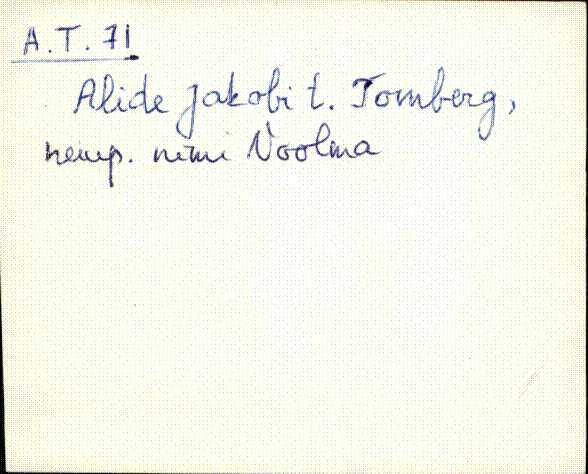 A.T. 71
Alide Jakobi t. Tomberg,
neiup. nimi Noolma